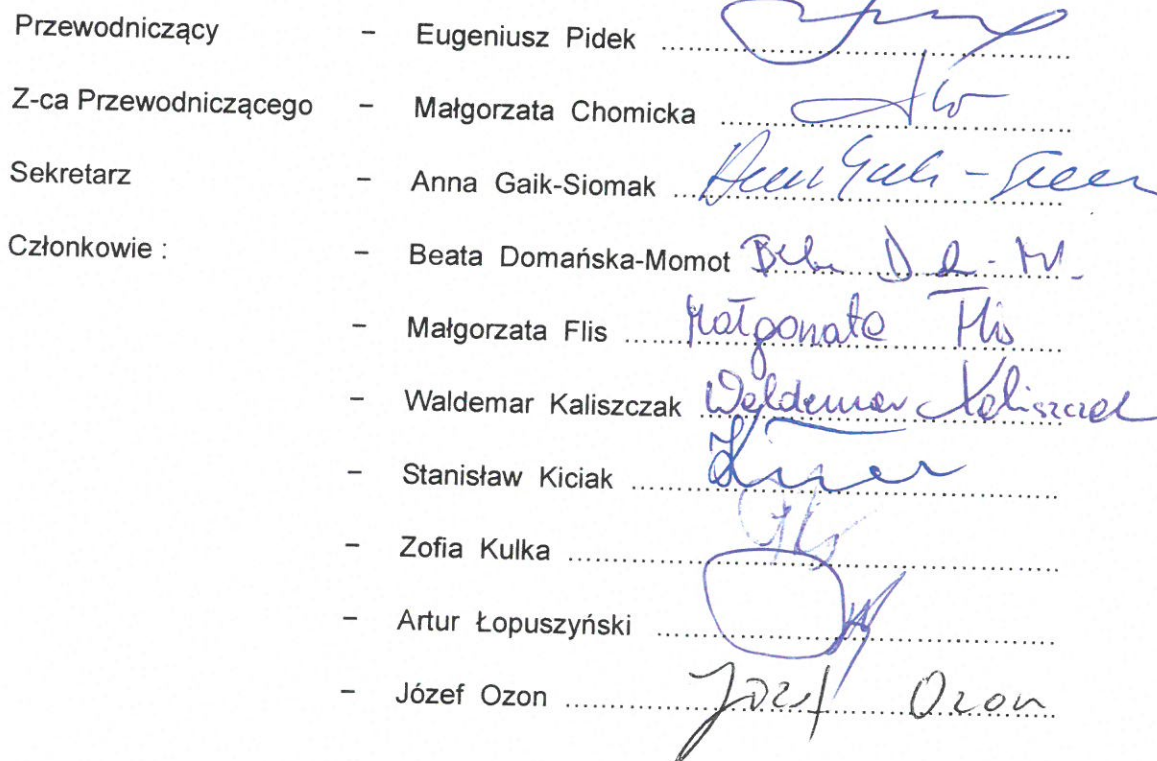 Przewodniczący - Eugeniusz Pidek ..........
Z-ca Przewodniczącego - Małgorzata Chomicka ..........
Sekretarz - Anna Gaik-Siomak ..........
Członkowie : - Beata Domańska-Momot ..........
- Małgorzata Flis .......... Małgorzata Flis
- Waldemar Kaliszczak .......... Waldemar Kaliszczak
- Stanisław Kiciak ..........
- Zofia Kulka ..........
- Artur Łopuszyński ..........
- Józef Ozon .......... Józef Ozon